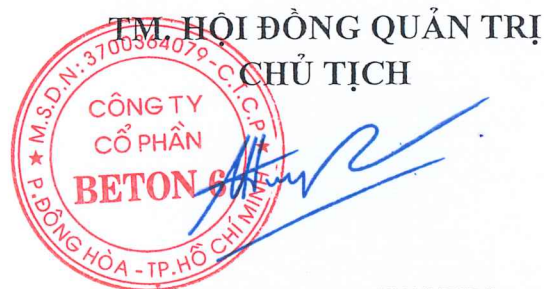 TM. HỘI ĐỒNG QUẢN TRỊ
CHỦ TỊCH
M.S.D.N: 3700364079 - C.T.C.P
CÔNG TY
CỔ PHẦN
BETON 6
P. ĐÔNG HÒA - TP. HỒ CHÍ MINH